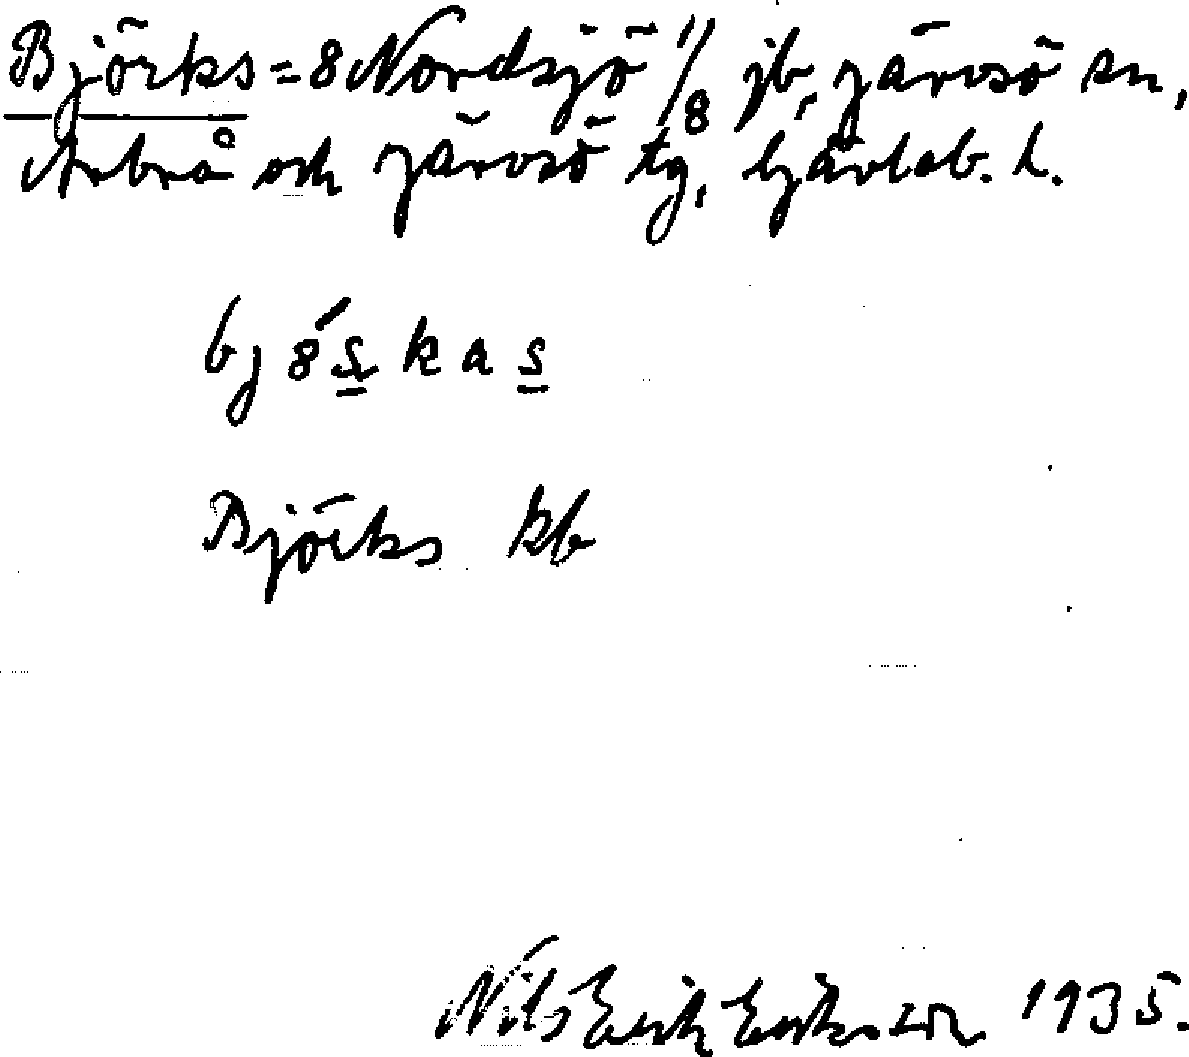 Björks = 8 Nordsjö 1/8 jb, Järvsö sn,
Arbrå och Järvsö tg, Gävleb. l.
bjöskas
Björks kb
Nils Erik Eriksson 1935.